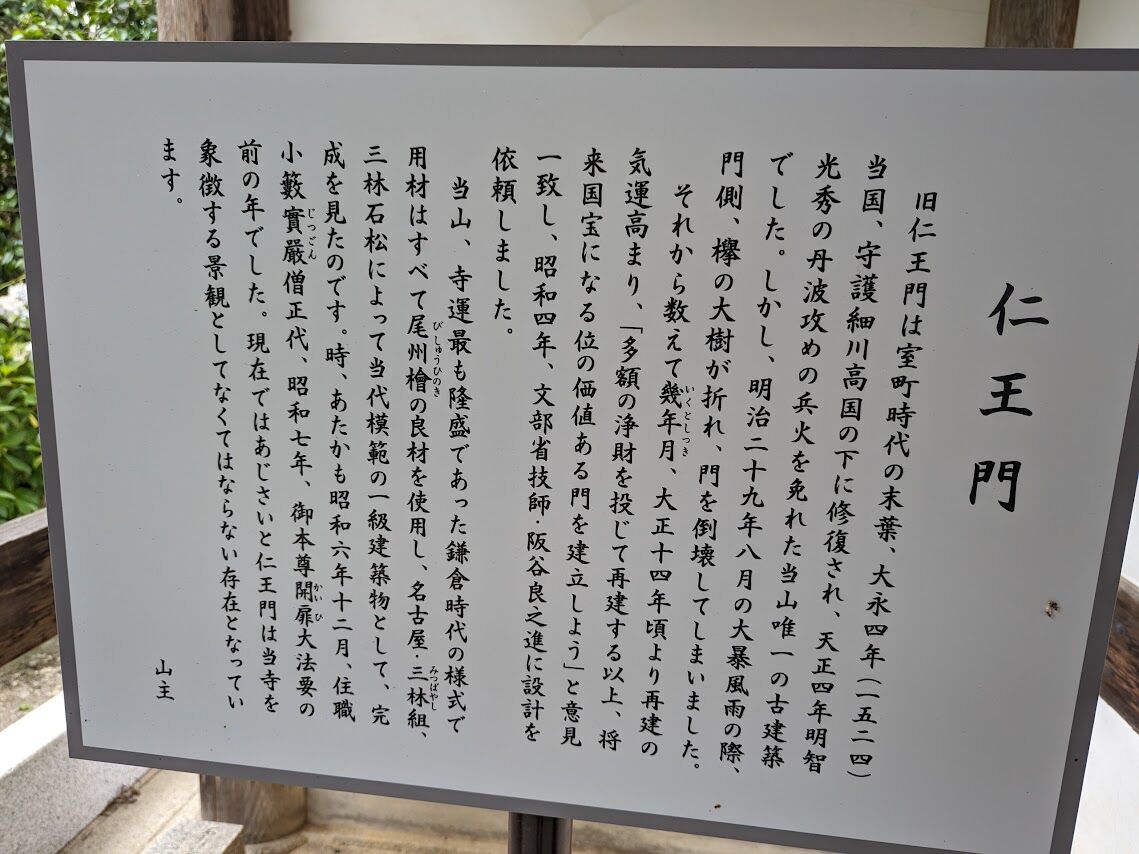 仁王門
旧仁王門は室町時代の末葉、大永四年(一五二四)
当国、守護細川高国の下に修復され、天正四年明智
光秀の丹波攻めの兵火を免れた当山唯一の古建築
でした。しかし、明治二十九年八月の大暴風雨の際、
門側、欅の大樹が折れ、門を倒壊してしまいました。
それから数えて幾年月、大正十四年頃より再建の
いくとしつき
気運高まり、「多額の浄財を投じて再建する以上、将
来国宝になる位の価値ある門を建立しよう」と意見
一致し、昭和四年、文部省技師・阪谷良之進に設計を
依頼しました。
当山、寺運最も隆盛であった鎌倉時代の様式で
用材はすべて尾州檜の良材を使用し、名古屋・三林組、
びしゅうひのき
みつばやし
三林石松によって当代模範の一級建築物として、完
成を見たのです。時、あたかも昭和六年十二月、住職
小籔實嚴僧正代、昭和七年、御本尊開扉大法要の
じつごん
かいひ
前の年でした。現在ではあじさいと仁王門は当寺を
象徴する景観としてなくてはならない存在となってい
ます。
山主